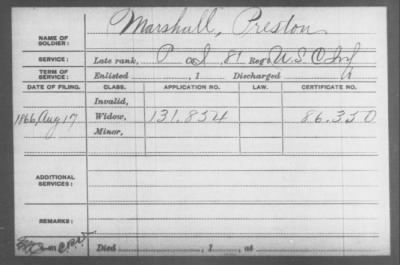 NAME OF SOLDIER: Marshall, Preston
SERVICE: Late rank, P Co I, 81 Reg't U.S.C. Inf
TERM OF SERVICE: Enlisted , 1 Discharged
DATE OF FILING. CLASS. APPLICATION NO. LAW. CERTIFICATE NO.
Invalid,
1866, Aug 17 Widow, 131.854 86.350
Minor,
ADDITIONAL SERVICES:
REMARKS:
Died , 1 , at